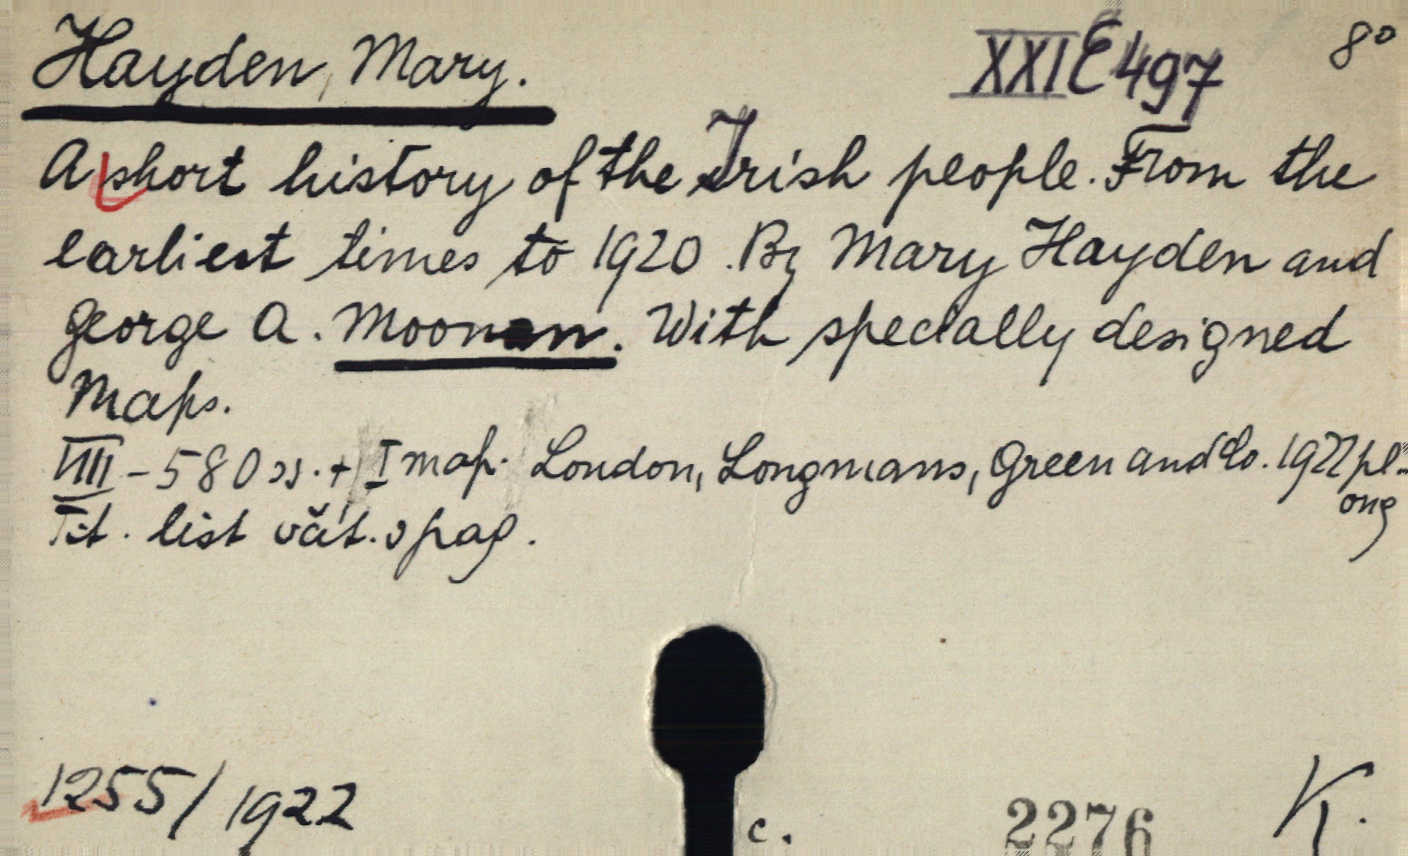 Hayden, Mary. XXI E 497 8°
A short history of the Irish people. From the
earliest times to 1920. By Mary Hayden and
George A. Moonan. With specially designed
maps.
VIII - 580 ss. + I map. London, Longmans, Green and Co. 1922 pl-
ong
Tit. list väč. s pag.
1255/1922
c. 2276 K.